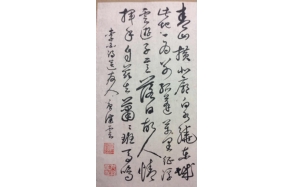 青山橫北廓白水繞東城
此地一為別孤蓬萬里征浮
雲遊子意落日故人情
揮手自茲去蕭々班馬鳴
李白詩送友人